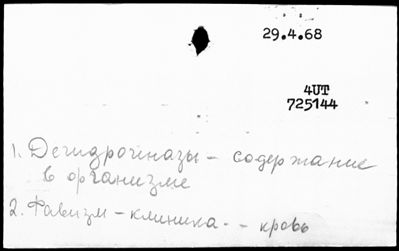 29.4.68
4UT
725144
1. Дегидрогиназы — содержание
в организме
2. Фавизм — клиника. - кровь